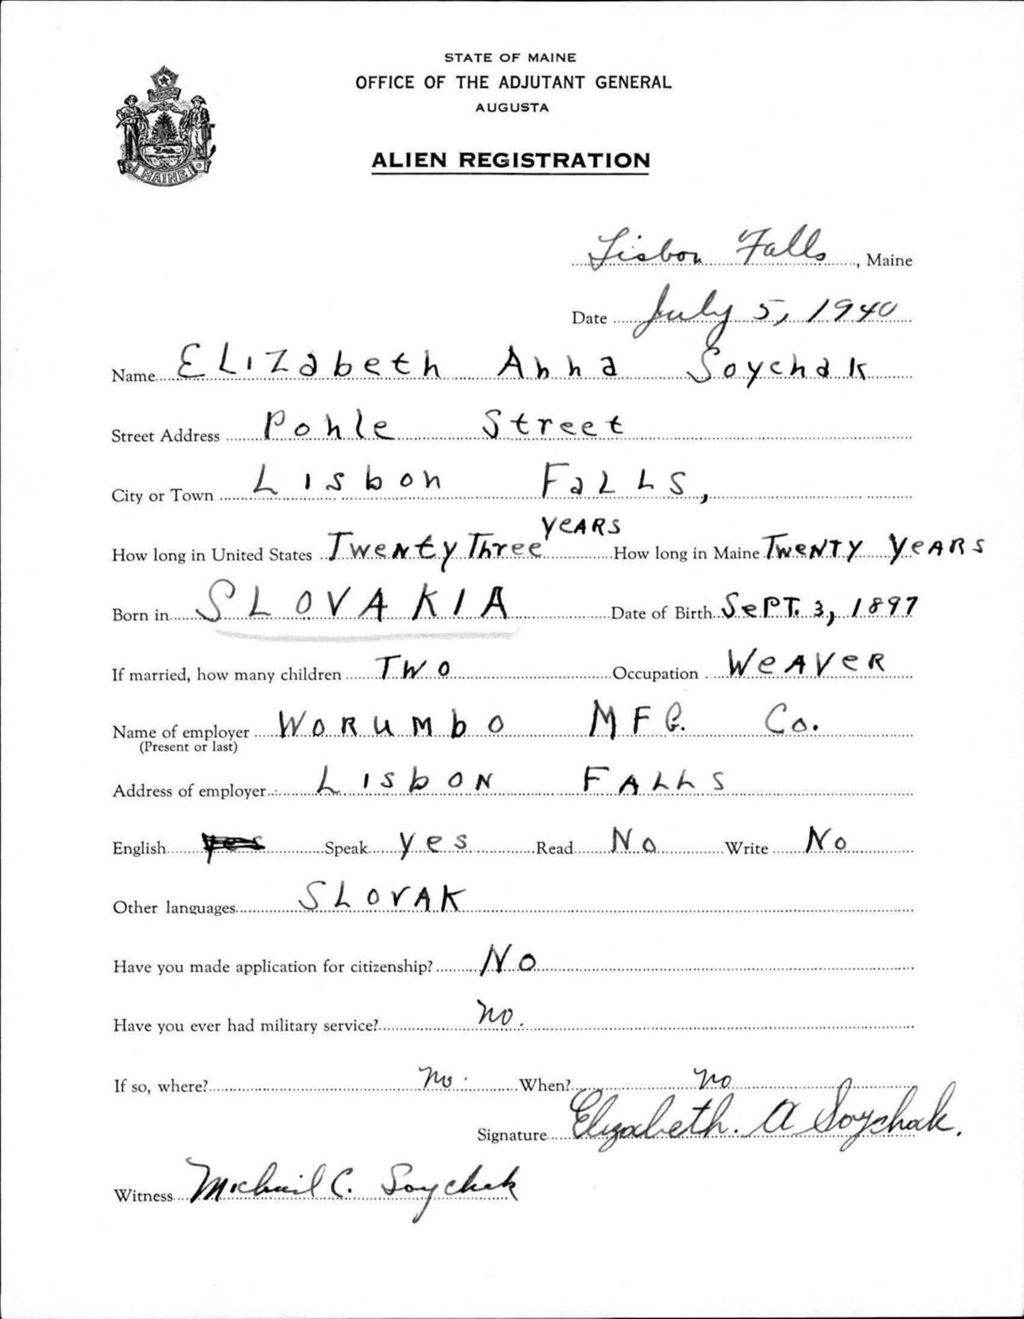 STATE OF MAINE
OFFICE OF THE ADJUTANT GENERAL
AUGUSTA
ALIEN REGISTRATION
MAINE
Lisbon Falls, Maine
Date July 5, 1940
Name ELIZabeth Anna Soychak
Street Address Pohle Street
City or Town Lisbon FaLLS,
How long in United States Twenty Three YEARS How long in Maine TWeNTY YeARS
Born in SLOVAKIA Date of Birth SePT. 3, 1897
If married, how many children TWO Occupation WeAVeR
Name of employer WORUMbO MFG. Co.
(Present or last)
Address of employer LISbON FALLS
English yes Speak yes Read No Write No
Other languages SLOVAK
Have you made application for citizenship? No
Have you ever had military service? no.
If so, where? no. When? no
Signature Elizabeth. A Soychak.
Witness Michail C. Soychak